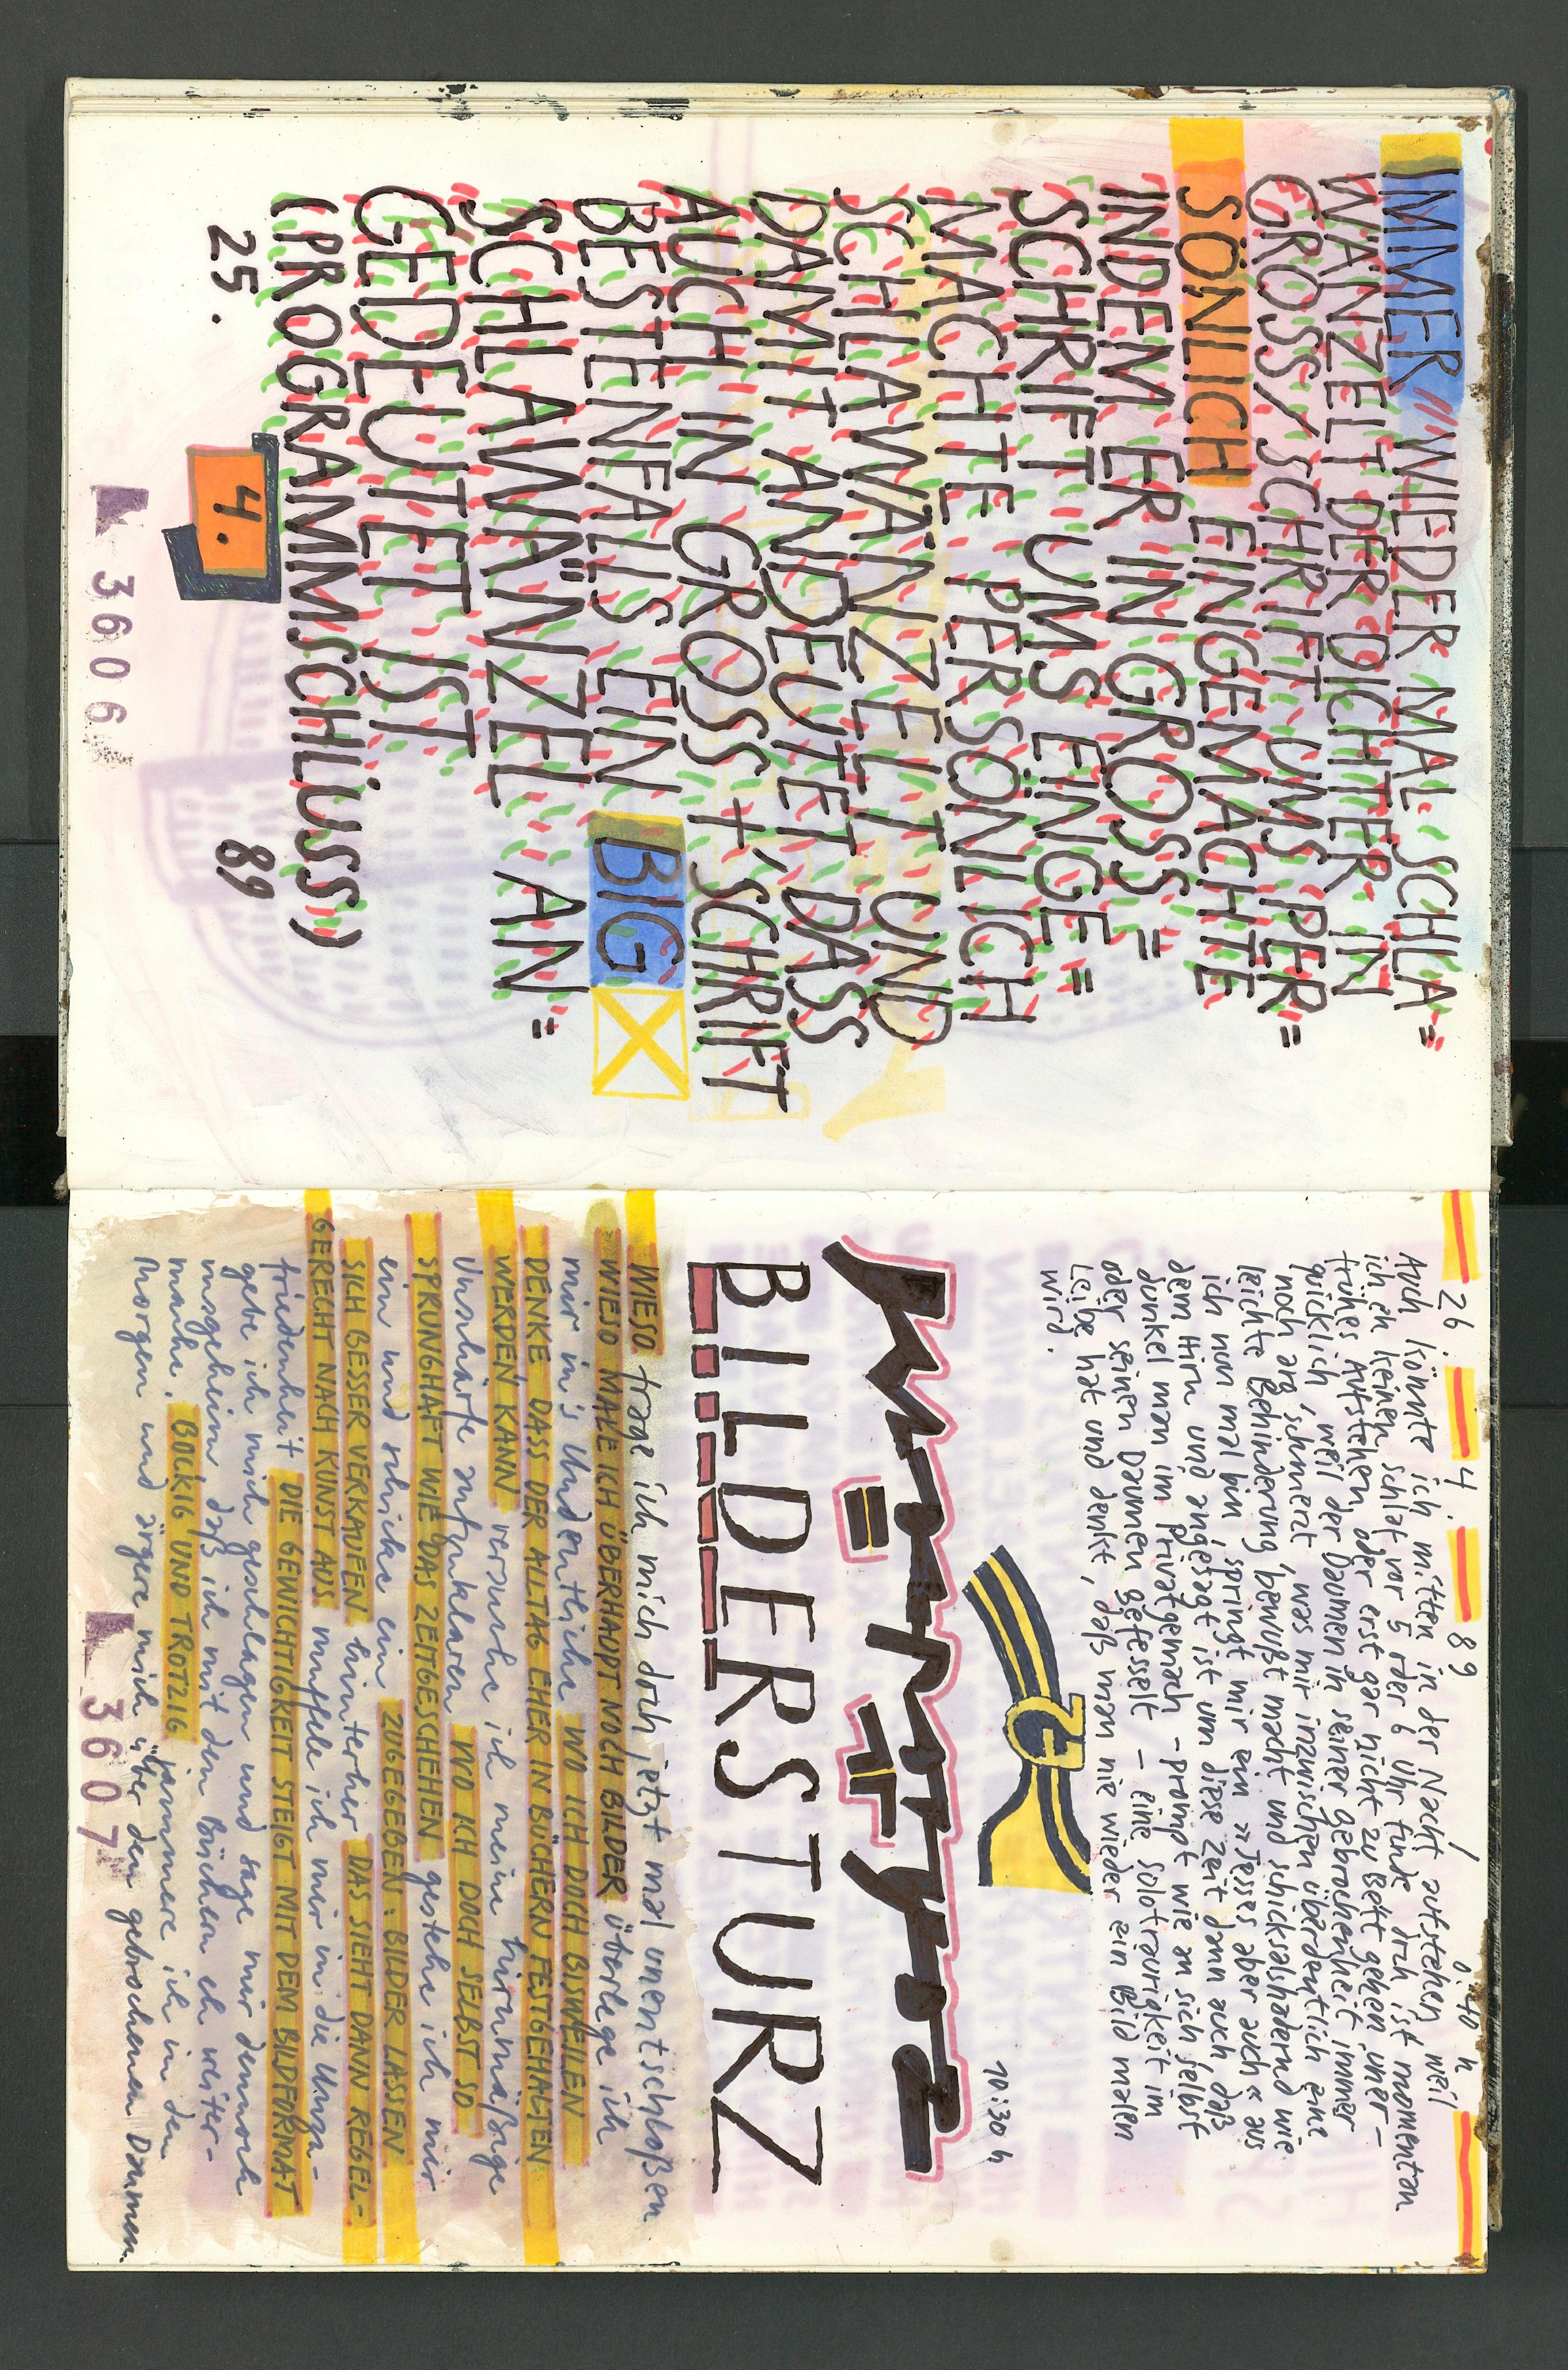 IMMER WIEDER MAL SCHLA=
WANZELT DER DICHTER IN
GROSS/SCHRIFT UMS PER=
SÖNLICH EINGEMACHTE
INDEM ER IN GROSS=
SCHRIFT UMS EINGE=
MACHTE PERSÖNLICH
SCHLAWANZELT UND
DAMIT ANDEUTET DASS
AUCH IN GROSS+SCHRIFT
BESTENFALLS EIN BIG
SCHLAWÄNZEL AN=
GEDEUTET IST.
(PROGRAMMSCHLUSS)
25. 4. 89
3606
26. 4. 89 / 0:40 h
Auch könnte ich mitten in der Nacht aufstehen weil
ich eh keinen Schlaf vor 5 oder 6 Uhr finde doch ist momentan
frühes Aufstehen oder erst gar nicht zu Bett gehen uner-
quicklich, weil der Daumen in seiner Gebrochenheit immer
noch arg schmerzt, was mir inzwischen überdeutlich eine
leichte Behinderung bewußt macht und schicksalshadernd wie
ich nun mal bin, springt mir ein »Jesses aber auch« aus
dem Hirn und angesagt ist um diese Zeit dann auch daß
dunkel man im Privatgemach - prompt wie an sich selbst
oder seinen Daumen gefesselt - eine Solotraurigkeit im
Leibe hat und denkt, daß man nie wieder ein Bild malen
wird.
10:30 h
BILDERSTURZ
WIESO frage ich mich doch jetzt mal unentschloßen
WIESO MALE ICH ÜBERHAUPT NOCH BILDER überlege ich
mir in's Undeutliche WO ICH DOCH BISWEILEN
DENKE DASS DER ALLTAG EHER IN BÜCHERN FESTGEHALTEN
WERDEN KANN versuche ich meine hirnmäßige
Unschärfe aufzuklaren WO ICH DOCH SELBST SO
SPRUNGHAFT WIE DAS ZEITGESCHEHEN gestehe ich mir
ein und schicke ein ZUGEGEBEN. BILDER LASSEN
SICH BESSER VERKAUFEN hinterher DAS SIEHT DANN REGEL-
GERECHT NACH KUNST AUS muffele ich mir in die Unzu-
friedenheit DIE GEWICHTIGKEIT STEIGT MIT DEM BILDFORMAT
gebe ich mich geschlagen und sage mir dennoch
insgeheim daß ich mit den Büchern eh weiter-
mache. BOCKIG UND TROTZIG jammere ich in den
Morgen und ärgere mich über den gebrochenen Daumen
3607